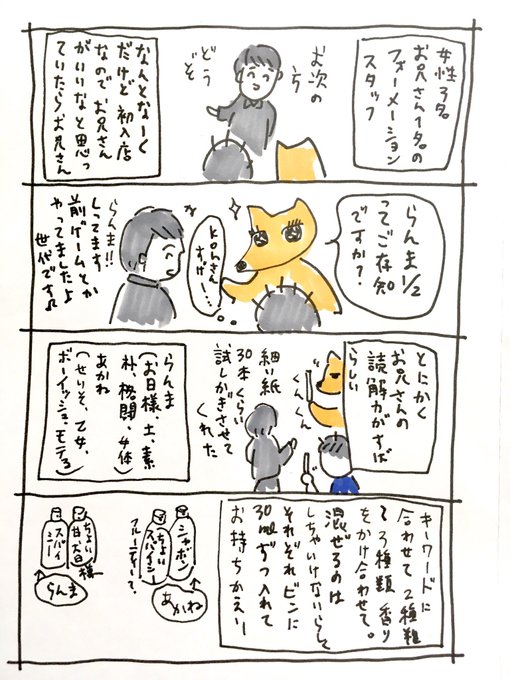 女性3名。
お兄さん1名の
フォーメーション
スタッフ
お次の
方
どう
ぞ
なんとなーく
だけど初入店
なのでお兄さん
がいいなと思っ
ていたらお兄さん
らんま1/2
ってご存知
ですか?
konさん
すげー…
らんま!!
しってます
前ゲームとか
やってましたよ
世代です♫
とにかく
お兄さんの
読解力がすば
らしい
くんくん
細い紙
30本くらい
試しかぎさせて
くれた
らんま
(お日様、土、素
朴、格闘、女体)
あかね
(せいそ、乙女、
ボーイッシュ、モテる)
キーワードに
合わせて2種類
3種類香り
をかけ合わせて。
混ぜるのは
しちゃいけないらしく
それぞれビンに
30mlずつ入れて
お持ちかえりー
シャボン
ちょい
スパイシー
フルーティー?
あかね
ちょい
甘お日
様
スパイ
シー
らんま